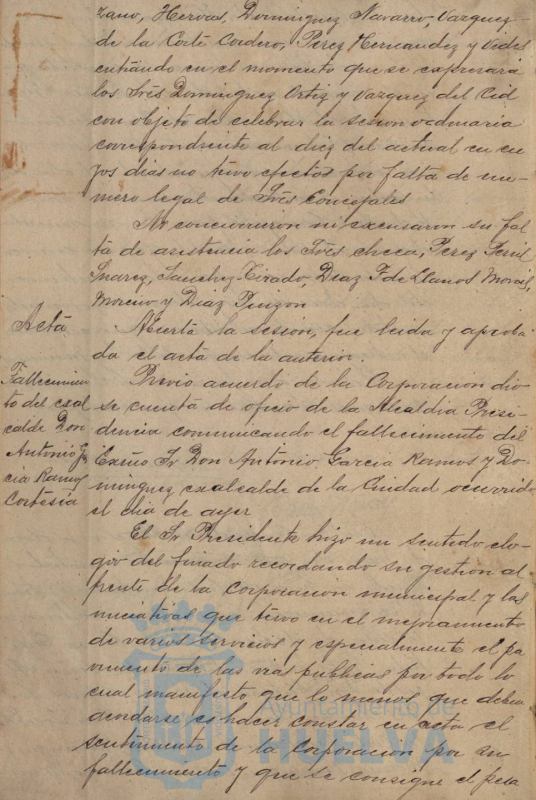 zano, Hervas, Dominguez Navarro, Vazquez
de la Corte Cordero, Perez Hernandez y Vides
entrando en el momento que se expresará
los Sres Dominguez Ortiz y Vazquez del Cid
con objeto de celebrar la sesion ordinaria
correspondiente al diez del actual en cu
yos dias no tuvo efectos por falta de nu
mero legal de Sres Concejales
No concurrieron ni excusaron su fal
ta de asistencia los Sres Checa, Perez
Suarez, Sanchez Tirado, Diaz F de Llanos
Moreno y Diaz Pinzon
Acta
Abierta la sesion, fue leida y aproba
da el acta de la anterior.
Fallecimien
to del exal
calde Don
Antonio Gar
cia Ramos
Cortesia
Previo acuerdo de la Corporacion dio
se cuenta de oficio de la Alcaldia Presi
dencia comunicando el fallecimiento del
Exmo Sr Don Antonio Garcia Ramos y Do
minguez exalcalde de la Ciudad ocurrido
el dia de ayer
El Sr Presidente hizo un sentido elo
gio del finado recordando su gestion al
frente de la Corporacion municipal y las
iniciativas que tuvo en el mejoramiento
de varios servicios y especialmente el pa
vimento de las vias publicas por todo lo
cual manifesto que lo menos que debia
acordarse es hacer constar en acta el
sentimiento de la Corporacion por su
fallecimiento y que se consigne el pesa
Ayuntamiento de
HUELVA